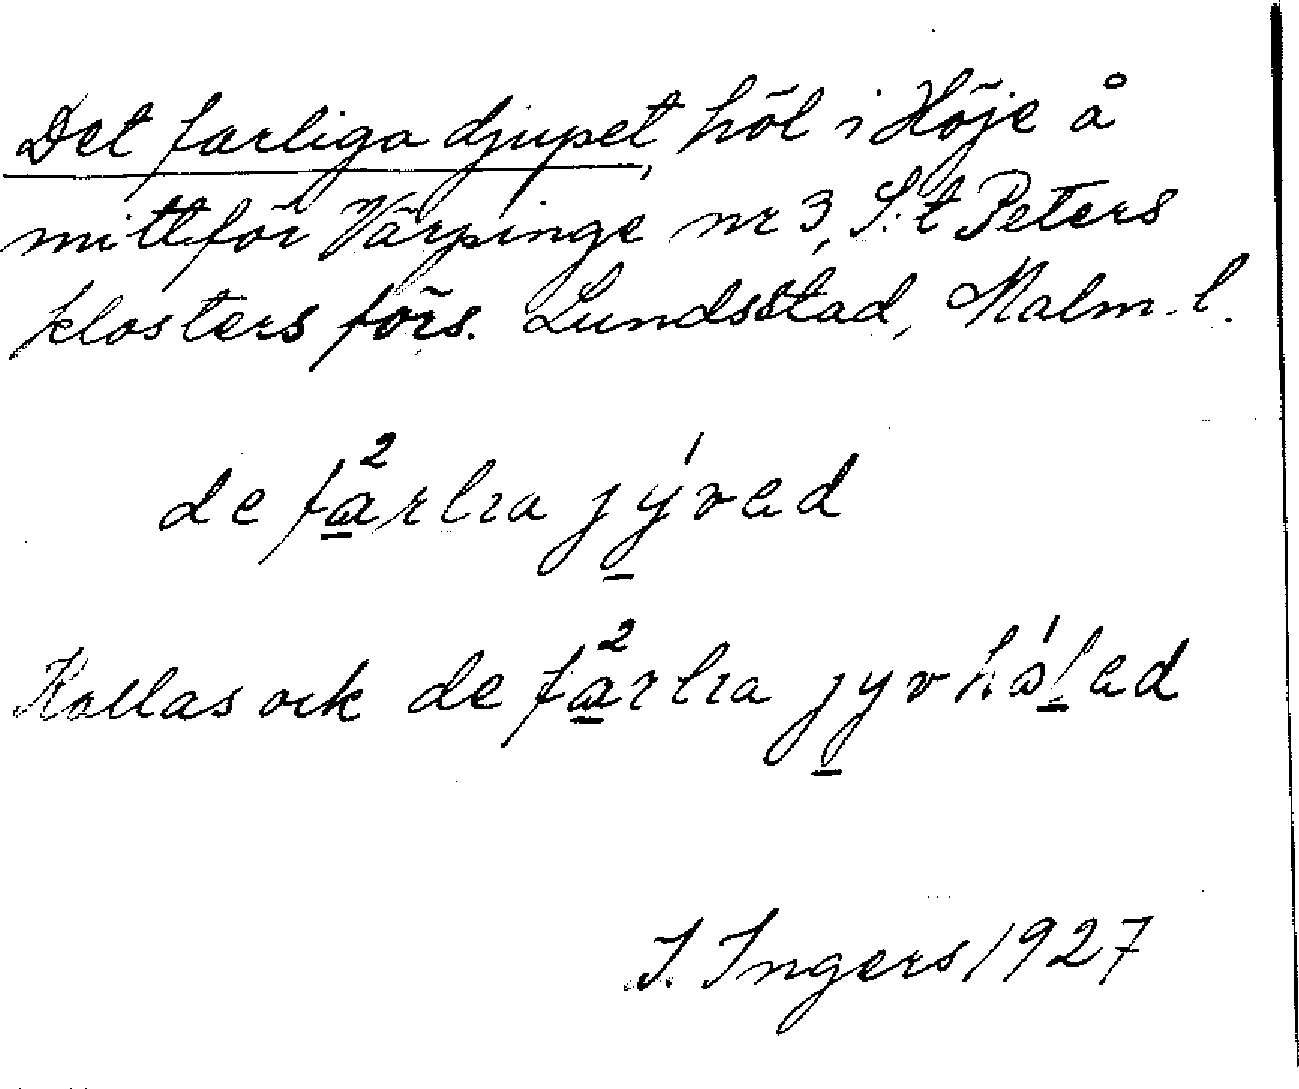 Det farliga djupet, höl i Höje å
mittför Värpinge nr 3, S:t Peters
klosters förs. Lunds stad, Malm. l.
de fa²rlıa jy´vad
Kallas ock de fa²rlıa jyvhå´lad
I. Ingers 1927